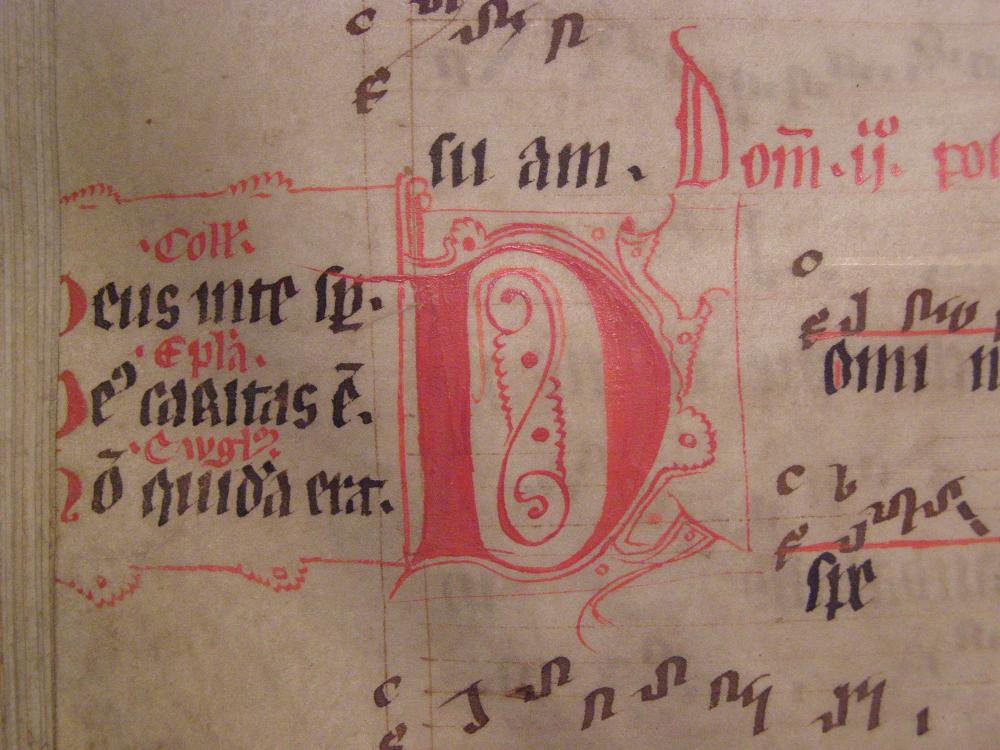 su am. Dom̄. ij.
.Coll.
Deus inte sp.
.Ep̄la.
De⁹ caritas ē.
.Ewgl.
Hō quidā erat.
D
omi
spe